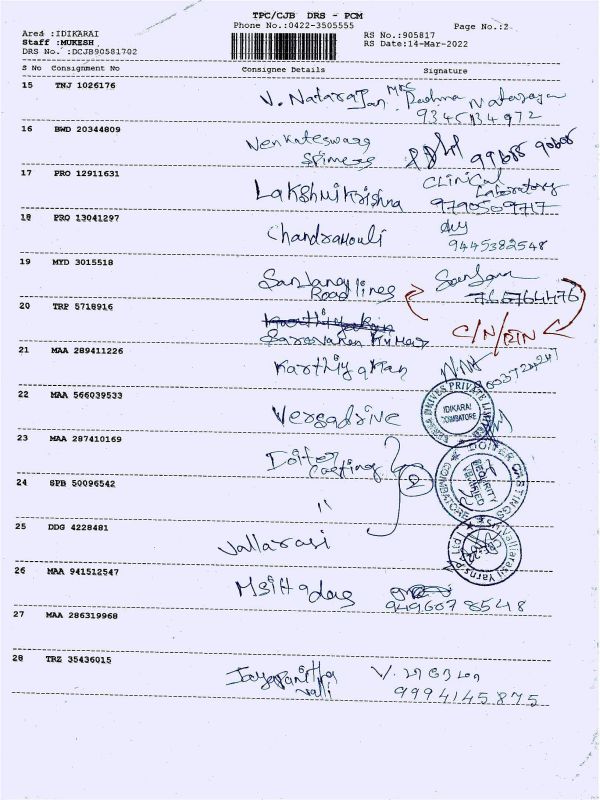 TPC/CJB DRS - PCM
Phone No.:0422-3505555 Page No.:2
Area :IDIKARAI RS No.:905817
Staff :MUKESH . RS Date:14-Mar-2022
DRS No. :DCJB90581702
S No Consignment No Consignee Details Signature
15 TNJ 1026176 V. Natarajan Mrs. Padma Natarajan
9345134972
16 BWD 20344809 Venkateswara
99688 90688
17 PRO 12911631 Lakshmikrishna Clinical Laboratory
9790509717
18 PRO 13041297 Chandramouli
9445382548
19 MYD 3015518
Road lines 766764476
20 TRP 5718916 C/N/RTN
Saravanan Kumar
21 MAA 289411226 Karthiyakan
22 MAA 566039533 Versadrive
VERSA DRIVES PRIVATE LIMITED
IDIKARAI
COIMBATORE
23 MAA 287410169 Doifer Casting
DOITER CASTINGS
SECURITY
COIMBATORE
24 SPB 50096542 "
2
25 DDG 4228481 Vallarasi
Sri Vallarasi Yarns P Ltd
26 MAA 941512547
9496078548
27 MAA 286319968
28 TRZ 35436015
9994145875